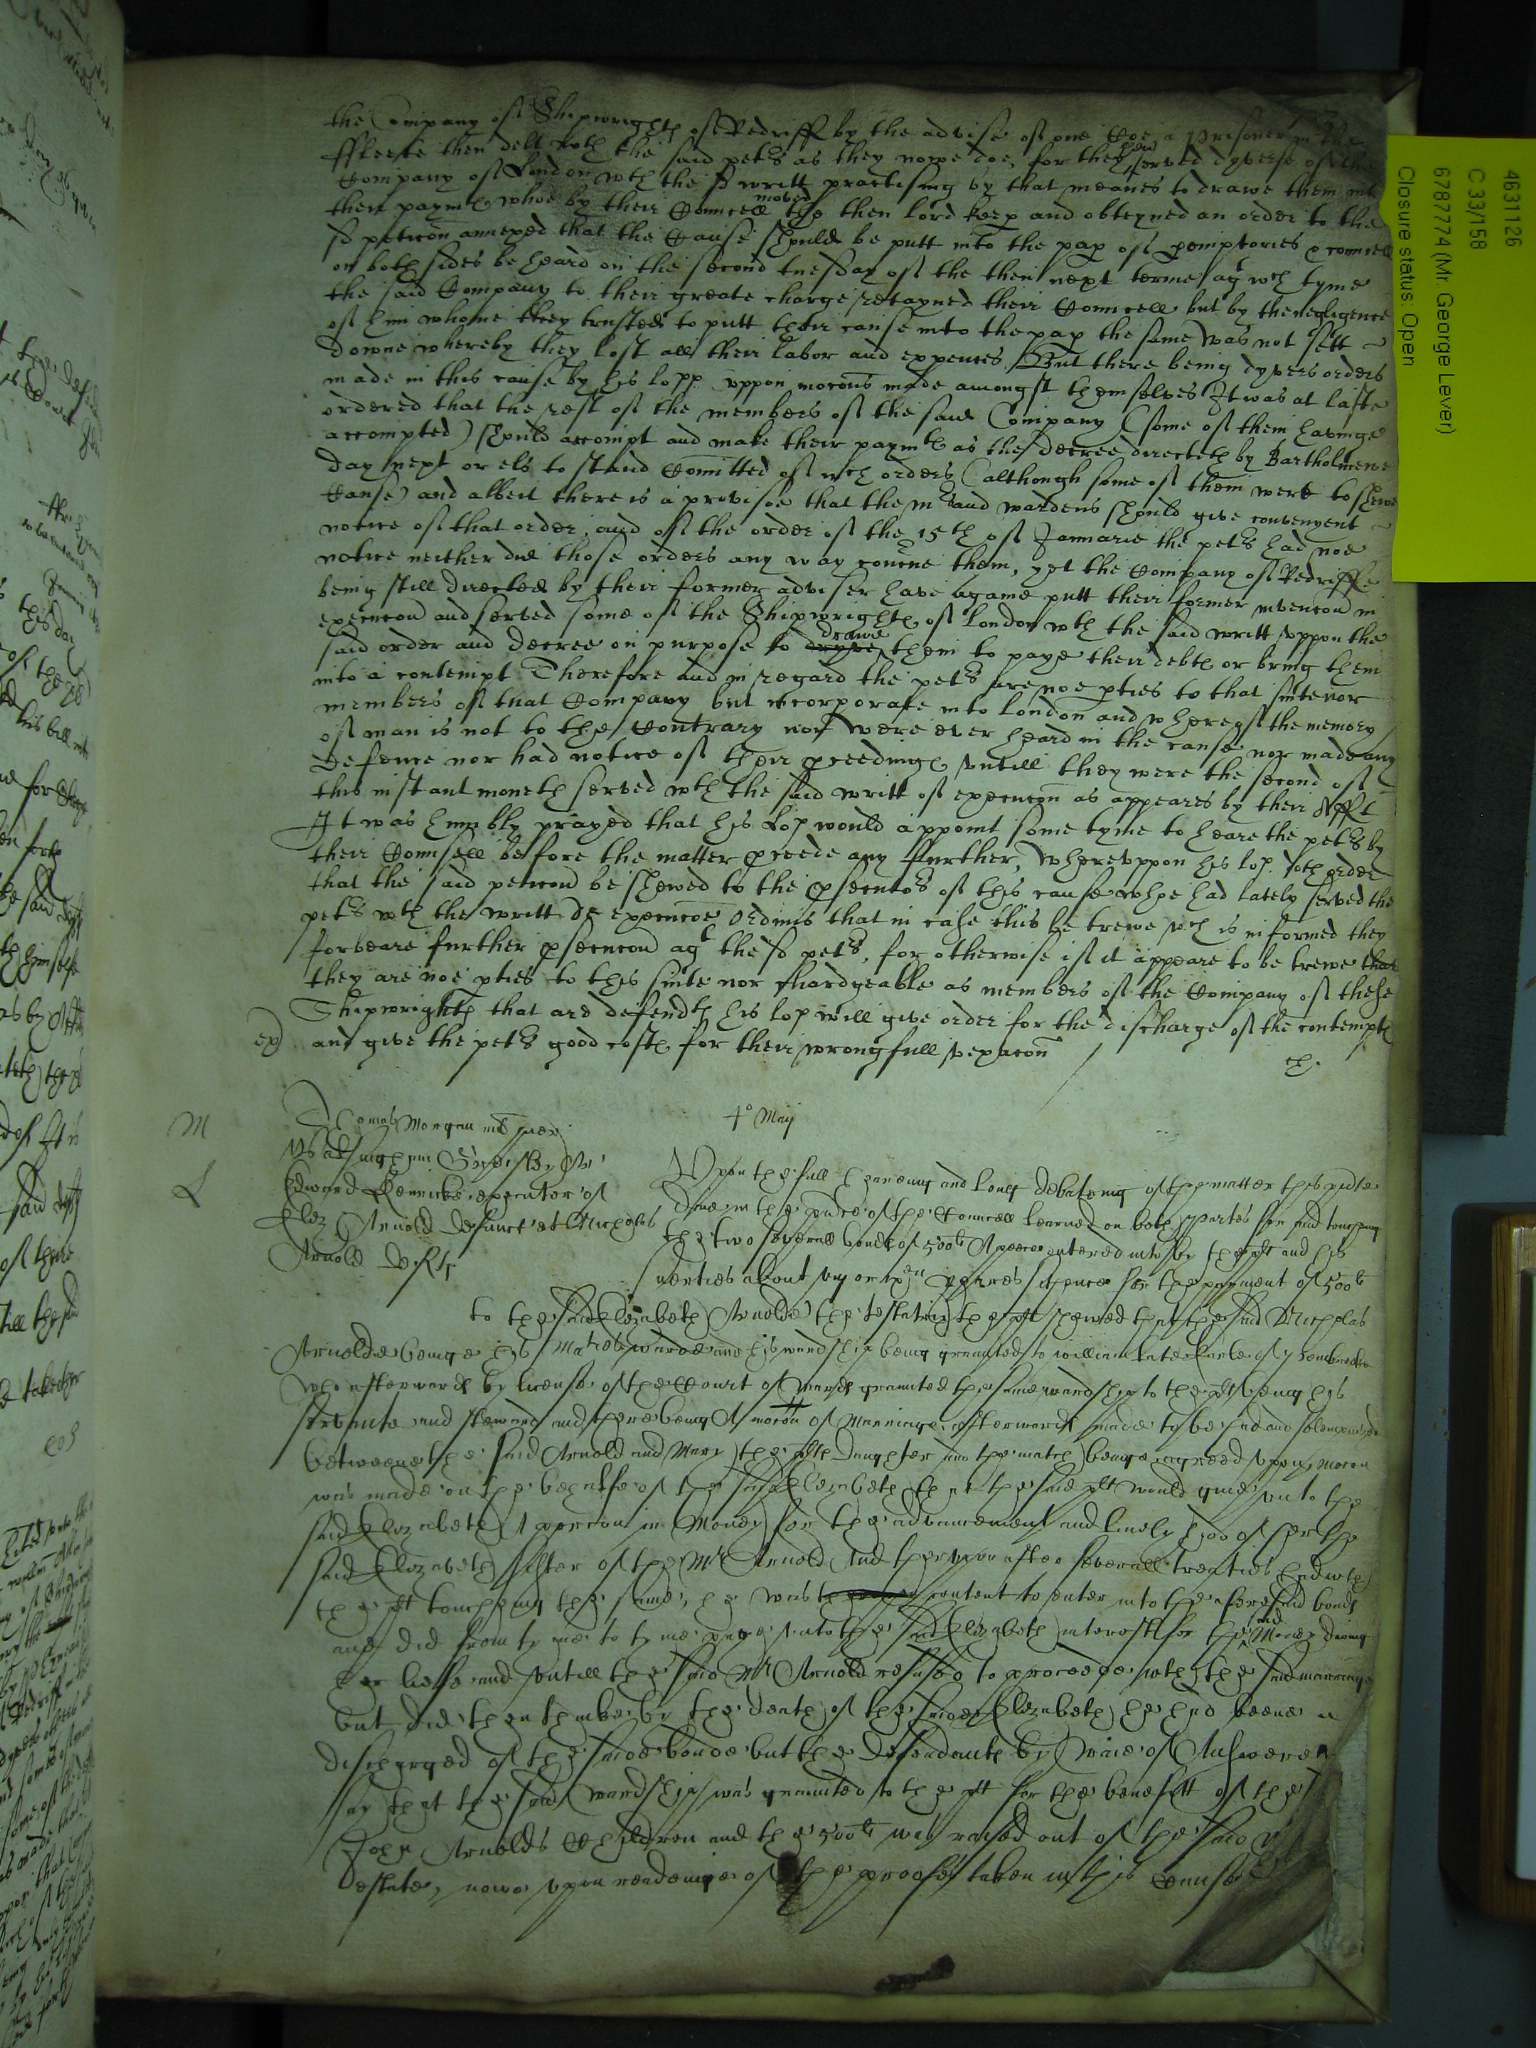 the Company of Shipwrightes of Redriff by the advise of one Coe a prisoner in the
ffleete then delt wth the said petrs as they nowe doe, for they served dyverse of the
Company of London wth the sd writt practising by that meanes to drawe them into
their paymt whoe by their Councell moved the then lord keep and obteyned an order to the
sd peticon annexed that the Cause should be putt into the pap of pemptories & councell
on both sides be heard on the second tuesday of the then next terme agt wch tyme
the said Company to their greate charge retayned their Councell but by the negligence
of him whome they trusted to putt their cause into the pap the same was not sett
downe whereby they lost all their labor and expences. But there being dyvers orders
made in this cause by his lopp uppon mocons made amongst themselves It was at laste
ordered that the rest of the members of the said Company (some of them havinge
accompted) should accompt and make their paymte as the decree directeth by Bartholmewe
day next or els to stand Comitted of wch orders (although some of them were to shewe
Cause) and albeit there is a provisoe that the mr and wardens should give convenyent
notice of that order, and of the order of the 15th of Januarie the petrs had noe
notice neither did those orders any way concne them, yet the Company of Redriffe
being still directed by their former adviser have againe putt their former invencon in
execucon and served some of the Shipwrightes of London wth the said writt uppon the
said order and decree on purpose to drawe them to paye their debte or bring them
into a contempt Therefore and in regard the petrs are noe pties to that suite nor
members of that Company but incorporate into London and whereof the memory
of man is not to the Contrary nor were ever heard in the cause nor made any
defence nor had notice of their pceedings untill they were the second of
this instant moneth served wth the said writt of execucon as appeares by their Afft
It was humbly prayed that his Lop would appoint some tyme to heare the petrs by
their Counsell before the matter pceede any further, Whereuppon his lop. doth order
that the said peticon be shewed to the psecutors of this cause whoe had lately served the
petrs wth the writt De execucoe ordinis that in case this be trewe wch is informed they
forbeare further psecucon agt the sd petrs, for otherwise if it appeare to be trewe that
they are noe pties to this suite nor Chardgeable as members of the Company of these
Shipwrightes that are defendts his lop will give order for the discharge of the contempte
and give the petrs good costes for their wrongfull vexacon
ex)
M
L
4o Maij
Thomas Morgan
Edward Kemishe executor of
Eliz Arnold defunct et Nicholas
Arnold defts
Upon the full hearing and long debateing of the matter this psente
daie in the psence of the Councell learned on both partes for and touching
the two severall bondes of 500li A peece entered into by the plt and his
suerties about syx or yeares sithence for the payment of 500li
to the said Elizabeth Arnolde the testatrix the plt shewed that the said Nicholas
Arnolde beinge his Mates warde and his wardship being graunted to william late Earle of Pembrooke
who afterwards by license of the Court of wards graunted the same wardship to the plt being his
servante and steward and there being A mocon of Marriage afterwards made to be had and solempnized
betweene the said Arnold and Mary the plts daughter and the match beinge agreed upon, mocon
was made on the behalfe of the said Elizabeth that the said plt would give unto the
said Elizabeth A porcon in Money for the advancement and lively hood of her the
said Elizabeth sister of the Mr Arnold And therupon after severall treaties had wth
the plt touching the same, he was content to enter into the aforesaid bonds
and did from tyme to tyme paye unto the said Elizabeth interest for the said Money during
her lieffe and untill the said Mr Arnold refused to proceede wth the said marriage
but did then thinke by the death of the said Elizabeth he had beene
discharged of the said bonde but the defendants by waie of Answere
say that the said wardship was graunted to the plt for the benefitt of the
John Arnolds Children and the 500li was raised out of the said
estate, nowe upon readeinge of the proofes taken in this Cause
4631126
C 33/158
6787774 (Mr. George Lever)
Closure status: Open